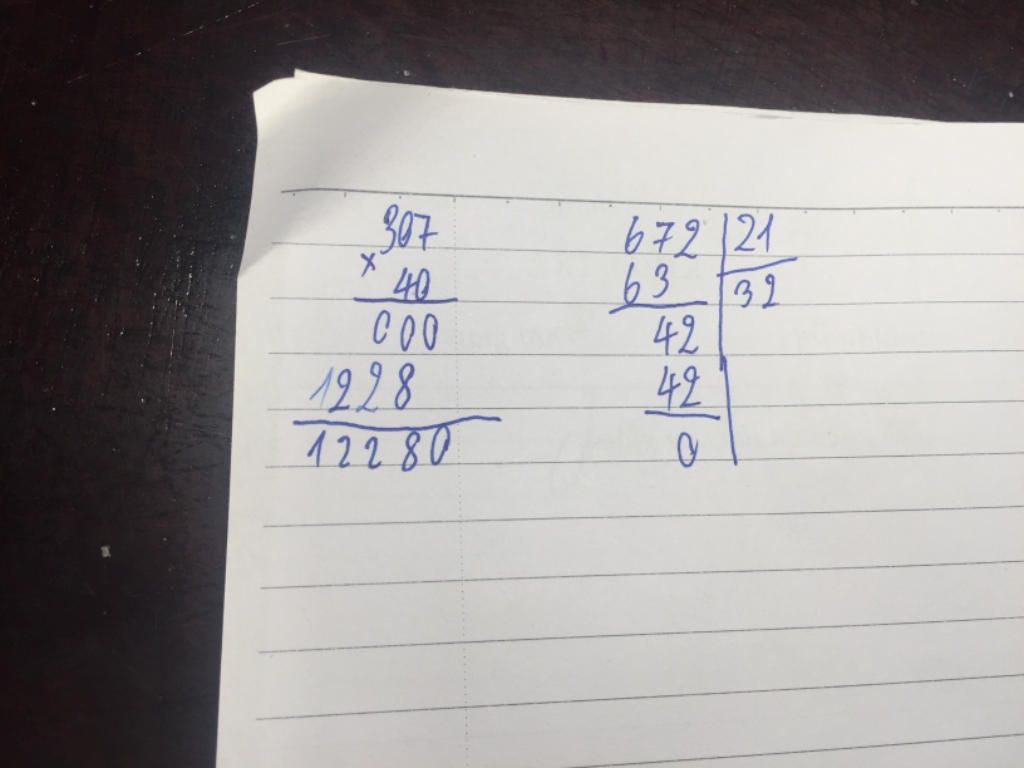 307
x
40
000
1228
12280
672 21
63 32
42
42
0